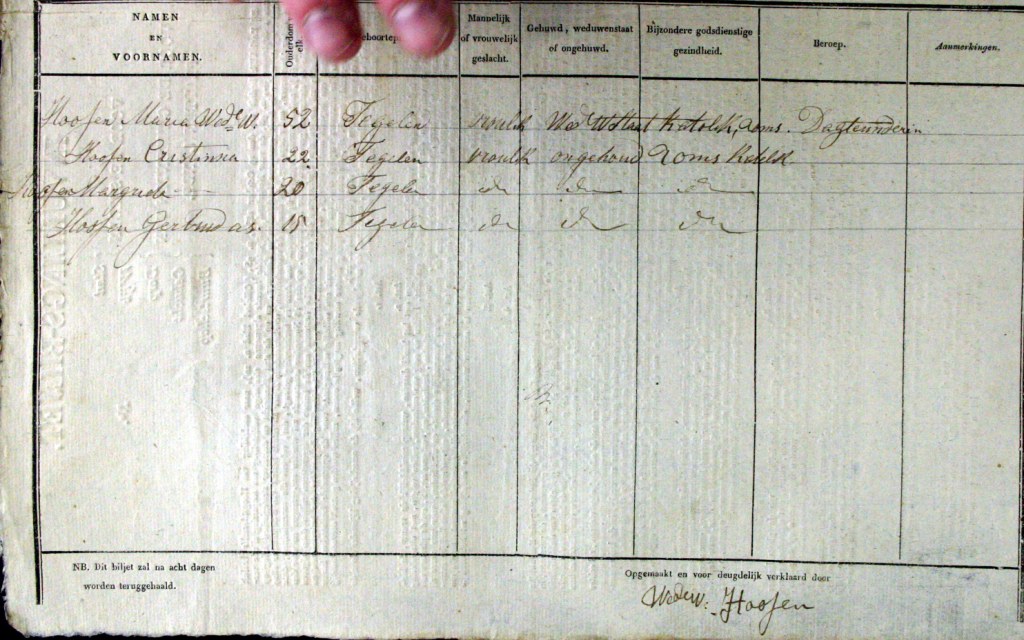 NAMEN
EN
VOORNAMEN.
Ouderdom
Mannelijk
of vrouwelijk
geslacht.
Gehuwd, weduwenstaat
of ongehuwd.
Bijzondere godsdienstige
gezindheid.
Beroep.
Aanmerkingen.
Hoosen Maria Wede W. 52 Tegelen vroulk Wed Katolk, roms.
Hoosen Cristina 22 Tegelen vroulk ongehoud Roms Katolk
Hoosen Margrieta 20 Tegelen do do do
Hoosen Gertrud as. 18 Tegelen do do do
NB. Dit biljet zal na acht dagen
worden teruggehaald.
Opgemaakt en voor deugdelijk verklaard door
Wede W: Hoosen